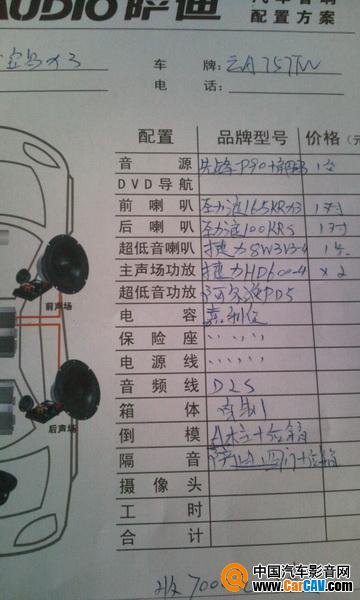 AUDIO 萨迪
汽车音响
配置方案
宝马X3 车牌: 云A757TW
电话:
配置 品牌型号 价格(元
音源 先锋P90+ 1台
DVD导航
前喇叭 劲浪165KRX3 1对
后喇叭 劲浪100KRS 1对
超低音喇叭 捷力8W3V3-4 1
主声场功放 捷力HD600-4 x2
超低音功放 阿尔派PD5
电容 嘉利仕
保险座 〃 〃 〃
电源线 〃 〃 〃
音频线 DLS
箱体 定制
倒模 A柱+后箱
隔音 四门+后箱
摄像头
工时
合计
前声场
后声场
700
中国汽车影音网
www.CarCAV.com